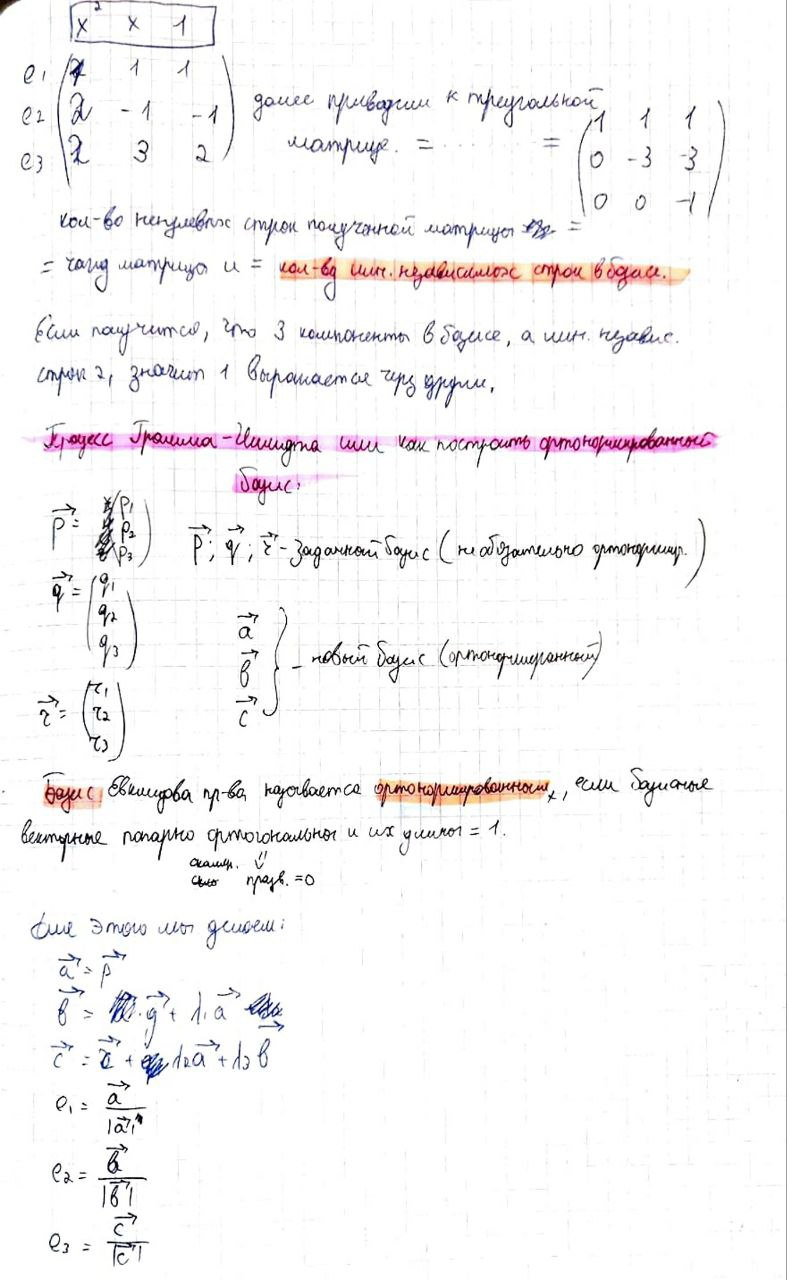 x² x 1
e₁ 1 1 1
e₂ 2 -1 -1 далее приводим к треугольной
e₃ 2 3 2 матрице. = ...... = 1 1 1
0 -3 -3
0 0 -1
кол-во ненулевых строк полученной матрицы =
= ранг матрицы и = кол-во лин. независимых строк в базисе.
Если получится, что 3 компоненты в базисе, а лин. независ.
строк 2, значит 1 выражается через другии.
Процесс Грамма-Шмидта или как построить ортонормированный
базис.
p = (p₁ p₂ p₃) p; q; r - заданный базис (не обязательно ортонормир.)
q = (q₁ q₂ q₃)
a
b } - новый базис (ортонормированный)
c
r = (r₁ r₂ r₃)
Базис Евклидова пр-ва называется ортонормированным, если базисные
векторные попарно ортогональны и их длины = 1.
скаляр. произв. = 0
Для этого мы делаем:
a = p
b = q + λ₁a
c = r + λ₂a + λ₃b
e₁ = a / |a|
e₂ = b / |b|
e₃ = c / |c|